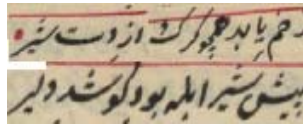 زخم یابد همچو گرگ از دست شیر
پیش شیر ابله بود کو شد دلیر